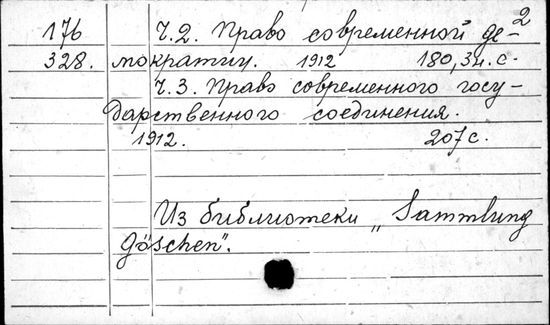 2
176 Ч.2. Право современной де-
328. мократии. 1912 180,34.с.
Ч.3. Право современного госу-
дарственного соединения.
1912. 207с.
Из библиотеки „Sammlung
Göschen".